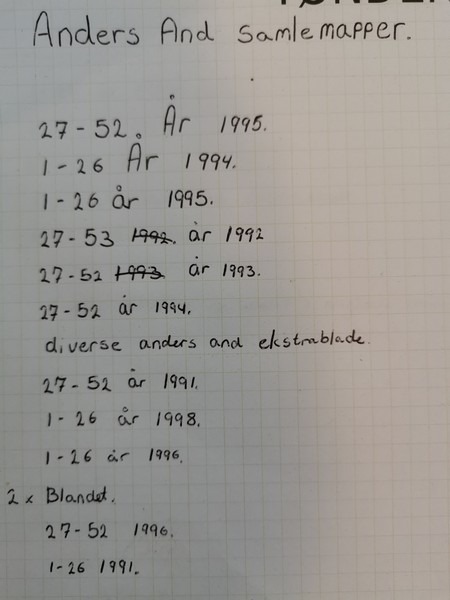 TØNDER
Anders And samlemapper.
27-52. År 1995.
1-26 År 1994.
1-26 år 1995.
27-53 1992. år 1992
27-52 1993 år 1993.
27-52 år 1994.
diverse anders and ekstrablade.
27-52 år 1991.
1-26 år 1998.
1-26 år 1996.
2 x Blandet.
27-52 1996.
1-26 1991.